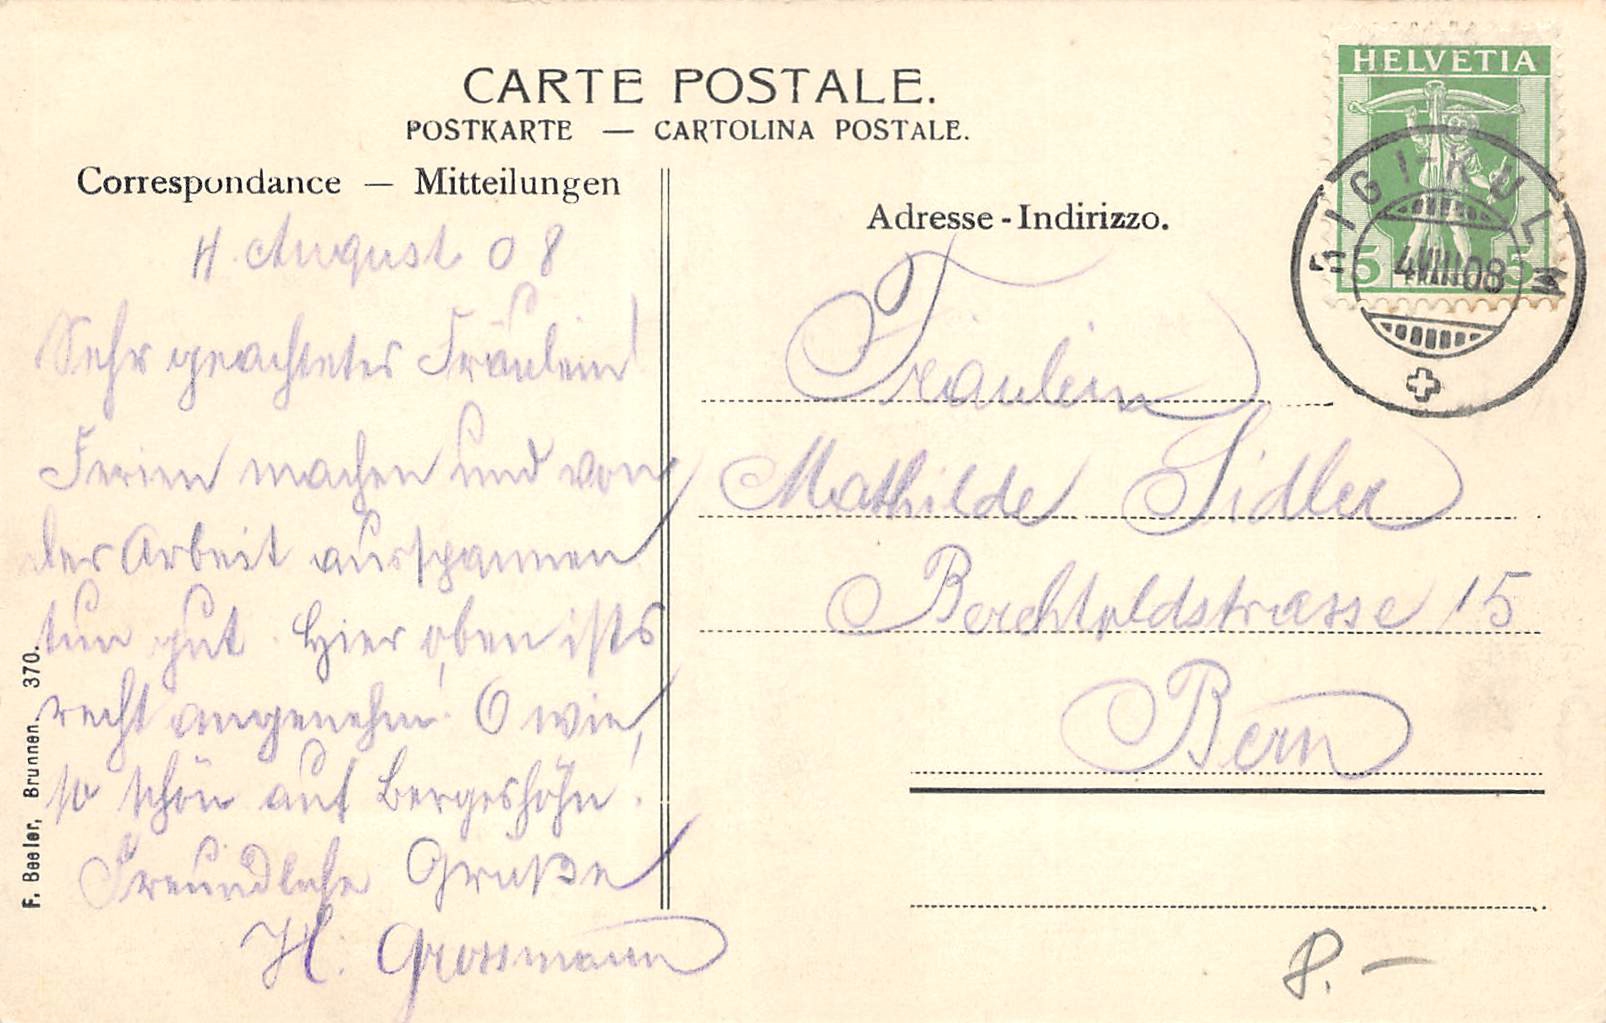 CARTE POSTALE.
POSTKARTE — CARTOLINA POSTALE.
Correspondance — Mitteilungen
Adresse - Indirizzo.
HELVETIA
5 5
FRANCO
RIGI-KULM
4.VIII.08
4. August 08
Sehr geachtetes Fräulein!
Ferien machen und von
der Arbeit ausspannen
tun gut. Hier oben ists
recht angenehm! O wie
so schön auf Bergeshöhn!
Freundliche Grüße
H. Grossmann
Fräulein
Mathilde Sidler
Berchtoldstrasse 15
Bern
F. Beeler, Brunnen. 370.
8.–